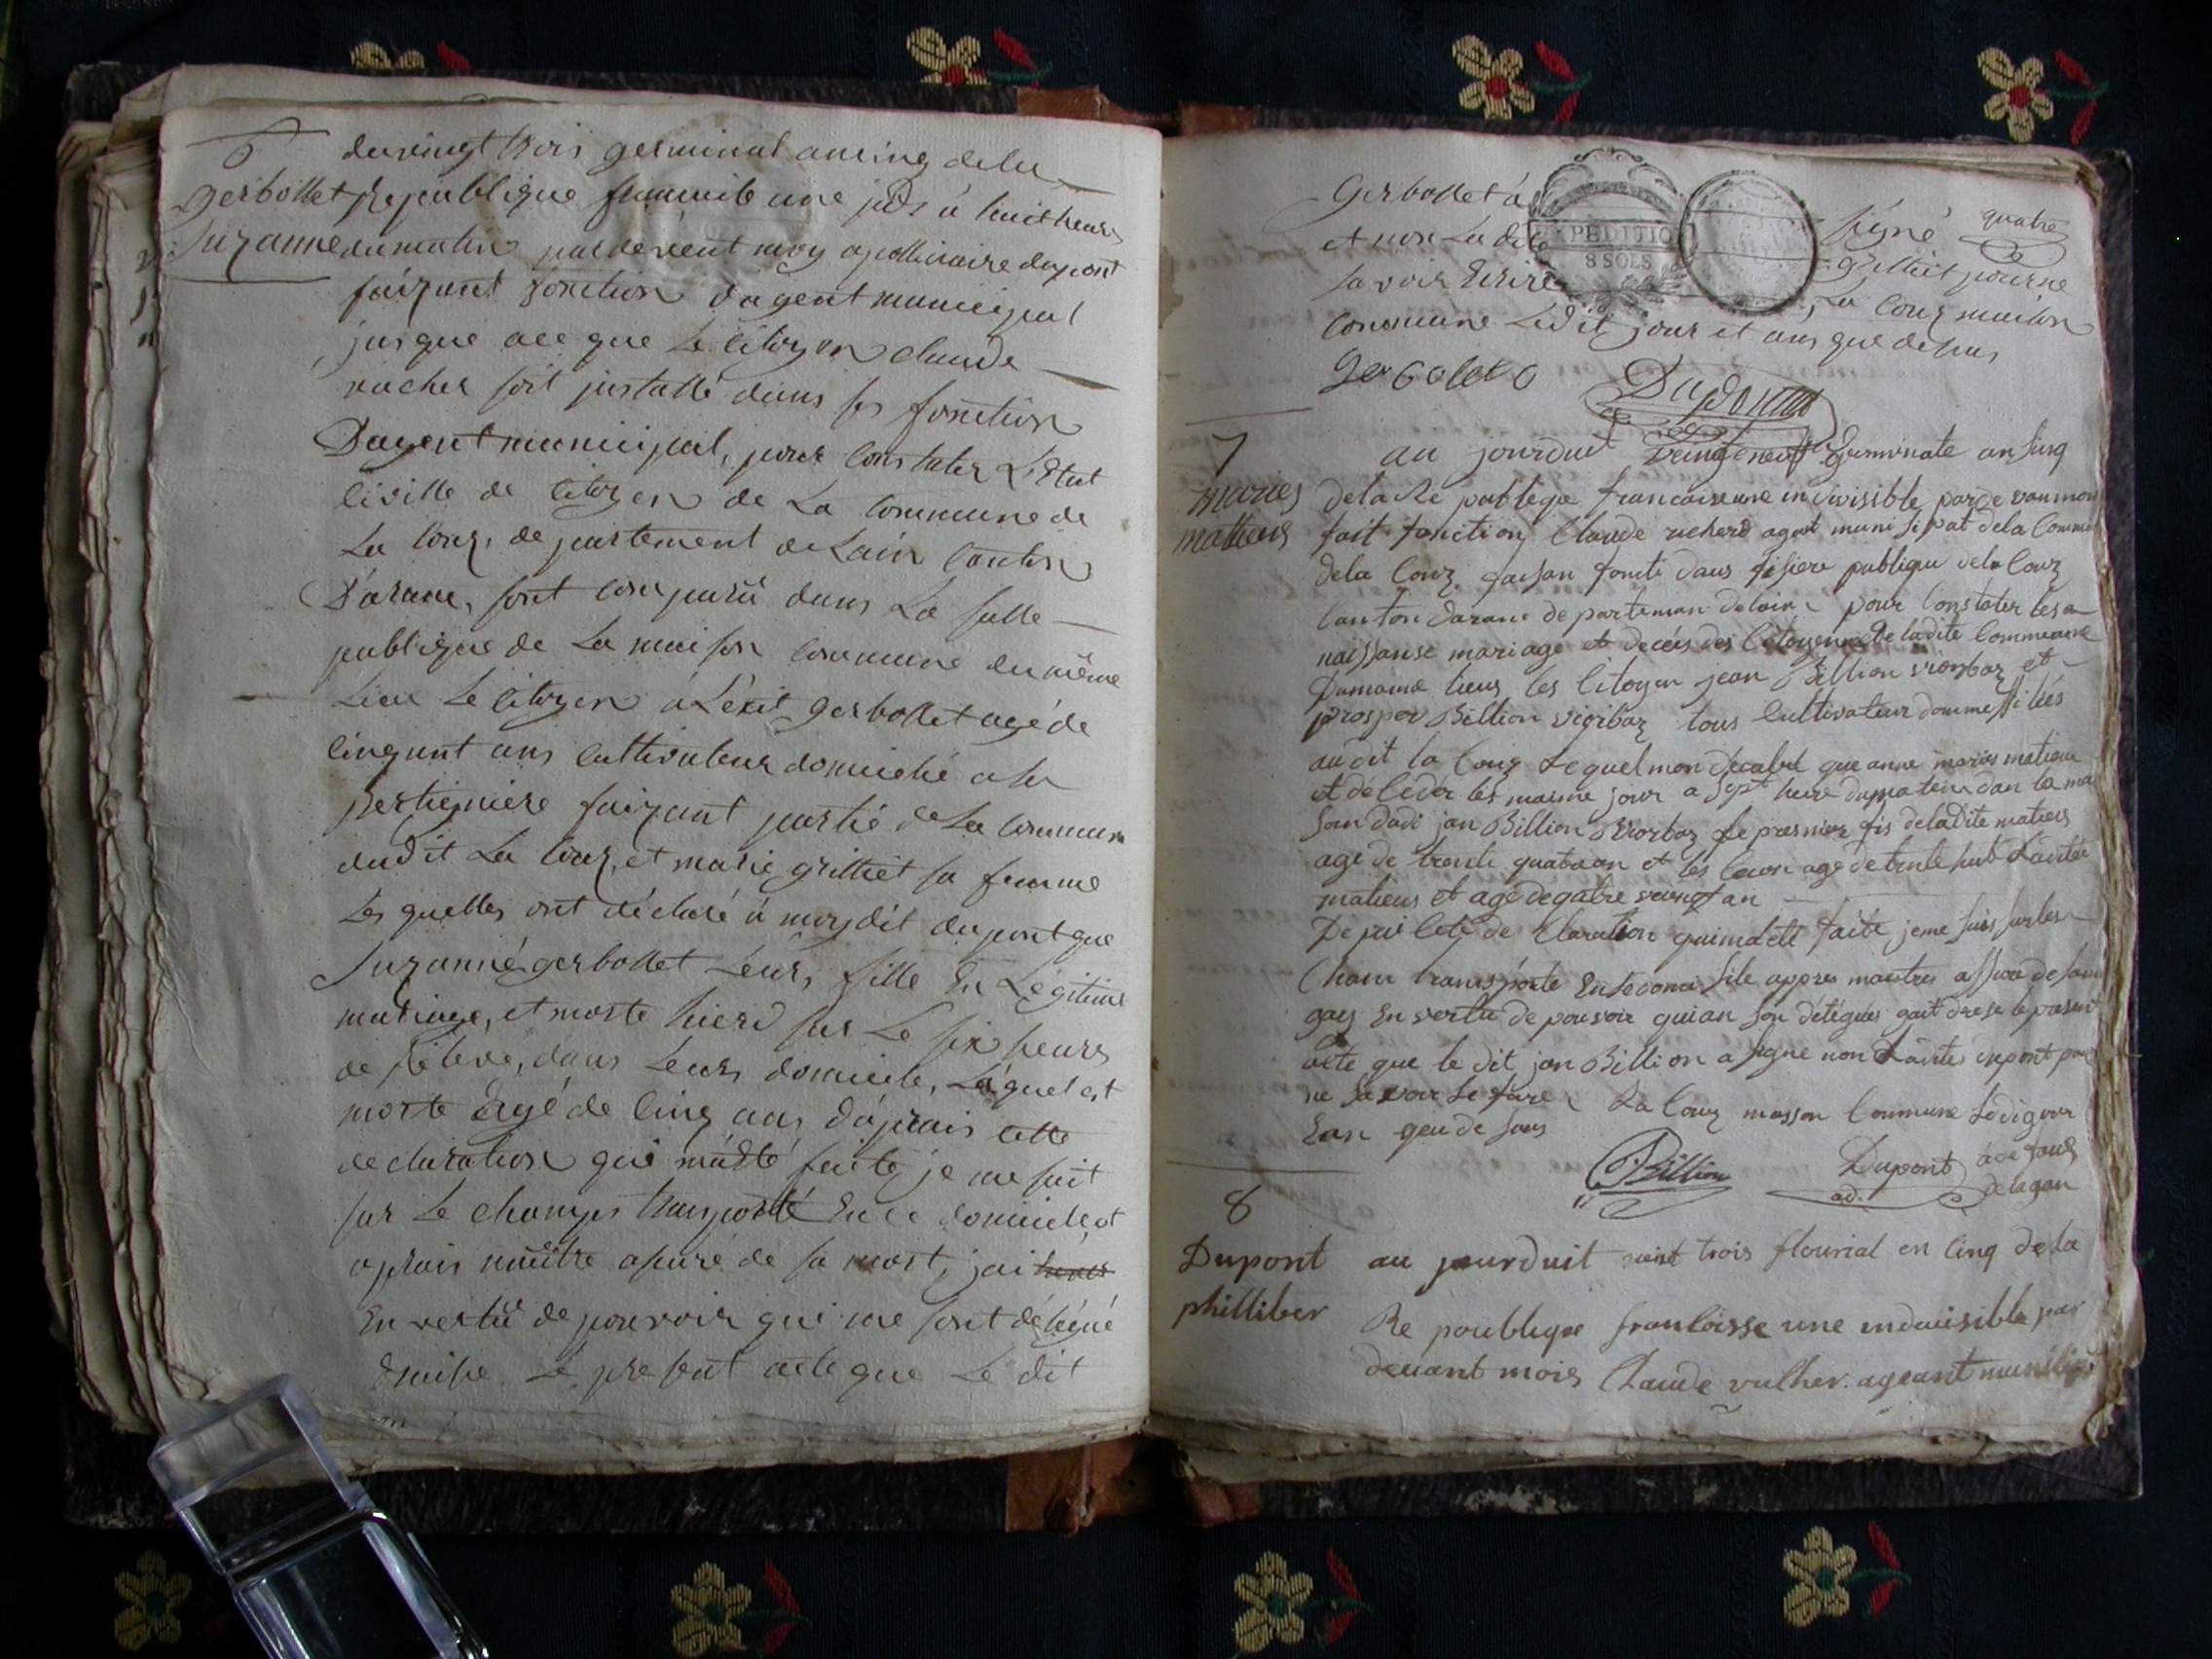 6
gerbollet
Suzanne
du vingt trois germinal an cinq de la
Republique francaise une jndis à huit heures
du matin pardevent moy apollinaire dupont
faizant fonction d'agent municipal
jusque ace que le citoyen claude
vucher soit jnstallé dans ses fonction
D'agent municipal, pour constater L'Etat
civille de citoyen de La commune de
La Couz, departement de Lain Canton
D'arane, sont comparû dans La salle
publique de La maison commune du même
Lieu Le citoyen àLexit gerbollet agé de
cinquant ans cultivateur domicilié a la
faizant partie de La commune
dudit La Couz, et marie grilliet sa femme
Les quelles ont déclaré à moydit dupont que
Suzanne gerbollet Leurs fille En Légitime
mariage, et morte hierd sur Le six heurs
de relevé, dans Leurs domicile, Laquel est
morte agé de cinq ans d'aprais cette
declaration qui m'aété faite, je me suit
sur Le champs transporté En ce domicile et
aprais m'aître asuré de sa mort, jai
En vertû de pouvoir qui me sont délégué
draisse Le present acte que Le dit
gerbollet à signé quatre
et non La dite grilliet pour ne
savoir Ecrire La Couz maison
commune Ledit jour et ans que desus
gerbolet Dupont
7
maries
matieus
au jourduit veingt neuf germinale an sinq
dela Re publique francaise une indivisible par de van moi
fait fonction Claude vucherd agent muni sipat dela Comm
dela Couz faisan foncti dans
publique dela Couz
Canton darane de parteman delain pour Constater les
naissanse mariage et decès des Citoyennes de ladite Commeune
Dumaime lieus les Citoyen jean Billion viorbaz et
prosper Billion viorbaz tous Cultivateur dommessiliés
audit la Couz Lequel mon declaré que anne maries matieus
et déCedér les maime jour a sept heure dumatein dan la mai
son dudi jan Billion viorbaz le premier fis deladite matieus
agé de trente quatre an et les Cecon age de trente huit Ladite
matieus et age de quatre veingt an
De pui Cete de Claration qui ma été faite jeme suis sur les
Cham transporte En sedomi sile appres maitres assure de
En vertu de pouvoir qui an son délégués gait drese le present
acte que le dit jan Billion a signe non Ladites dupont pour
ne savoir Le faire La Couz maison Commune Ledi gour
Ean que de sus
Billion Dupont ad. à de faus
de lagan
8
Dupont
philliber
au jourduit vint trois flourial en Cinq dela
Re poublique francoisse une indauisible par
deuant mois Claude vulher ageant municipal
EXPEDITION
8 SOLS